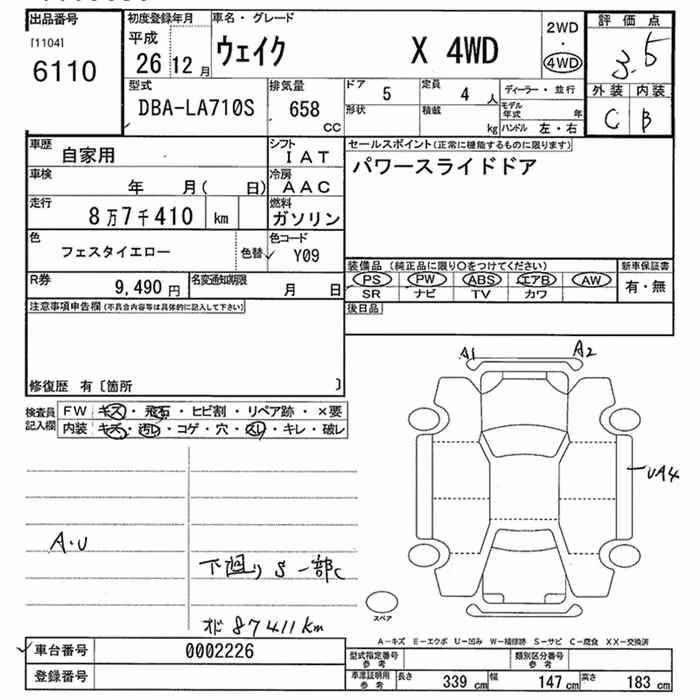 出品番号 初度登録年月 車名・グレード 2WD 評価点
[1104] 平成 ウェイク X 4WD ・ 3.5
6110 26 12月 4WD
型式 排気量 ドア 定員 ディーラー・並行 外装 内装
DBA-LA710S 658 cc 5 4人 モデル年式 年 C B
形状 積載 kg ハンドル 左・右
車歴 自家用 シフト IAT セールスポイント(正常に機能するものに限ります)
車検 年 月( 日) 冷房 AAC パワースライドドア
走行 8万7千410 km 燃料 ガソリン
色 フェスタイエロー 色替 色コード Y09
R券 9,490円 名変通知期限 月 日 装備品(純正品に限り○をつけてください) 新車保証書
PS PW ABS エアB AW 有・無
SR ナビ TV カワ
注意事項申告欄(不具合内容等は具体的に記入して下さい) 後日品
修復歴 有〔箇所 〕
A1 A2
検査員記入欄 FW キズ・飛石・ヒビ割・リペア跡・×要
内装 キズ・汚レ・コゲ・穴・スレ・キレ・破レ
UA4
A・U
下廻り S 一部C
87411km
スペア
A-キズ E-エクボ U-凹み W-補修跡 S-サビ C-腐食 XX-交換済
車台番号 0002226 型式指定番号参考 類別区分番号参考
登録番号 車庫証明用参考 長さ 339cm 幅 147cm 高さ 183cm